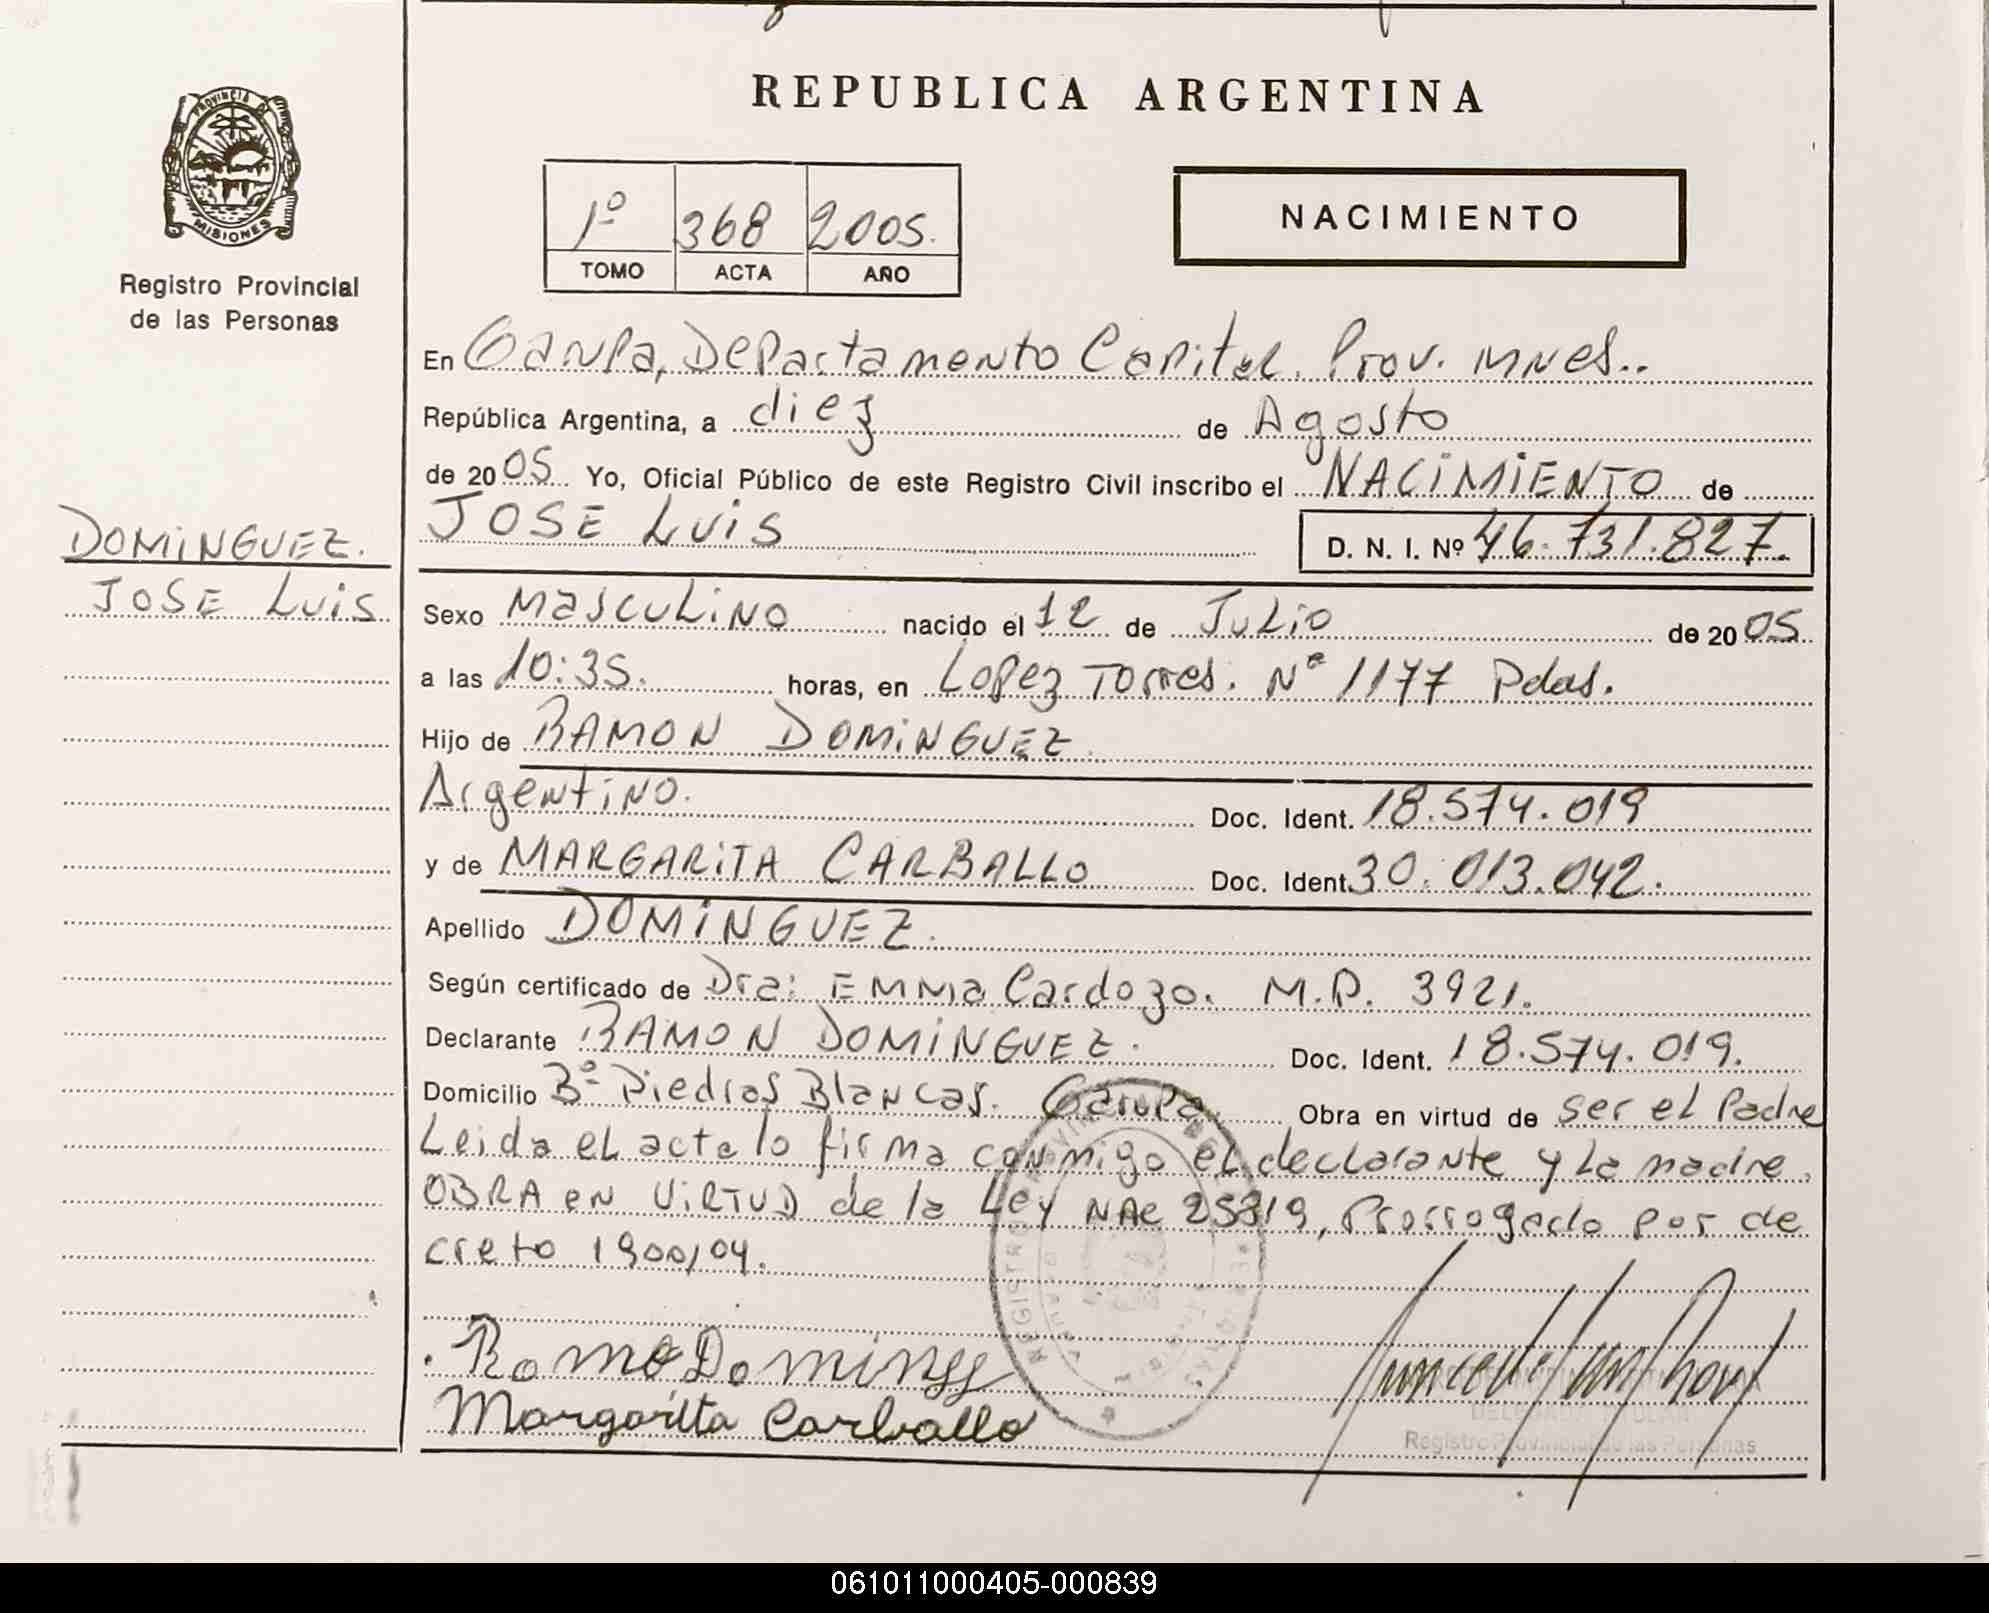 REPUBLICA ARGENTINA
PROVINCIA DE MISIONES
Registro Provincial
de las Personas
1º 368 2005.
TOMO ACTA AÑO
NACIMIENTO
En Garupa, Departamento Capital. Prov. Mnes..
República Argentina, a diez de Agosto
de 2005 Yo, Oficial Público de este Registro Civil inscribo el NACIMIENTO de
JOSE LUIS D. N. I. Nº 46.731.827.
DOMINGUEZ.
JOSE LUIS
Sexo MASCULINO nacido el 12 de Julio de 2005
a las 10:35. horas, en Lopez Torres. Nº 1177 Pdas.
Hijo de RAMON DOMINGUEZ.
Argentino. Doc. Ident. 18.574.019
y de MARGARITA CARBALLO Doc. Ident. 30.013.042.
Apellido DOMINGUEZ.
Según certificado de Dra: Emma Cardozo. M.P. 3921.
Declarante RAMON DOMINGUEZ. Doc. Ident. 18.574.019.
Domicilio Bº Piedras Blancas. Garupa. Obra en virtud de ser el Padre
Leida el acta lo firma conmigo el declarante y la madre.
OBRA en VIRTUD de la Ley NAC 25819, Prorrogado por de
creto 1900/04.
Margarita Carballo
DELEGADA TITULAR
Registro Provincial de las Personas
061011000405-000839